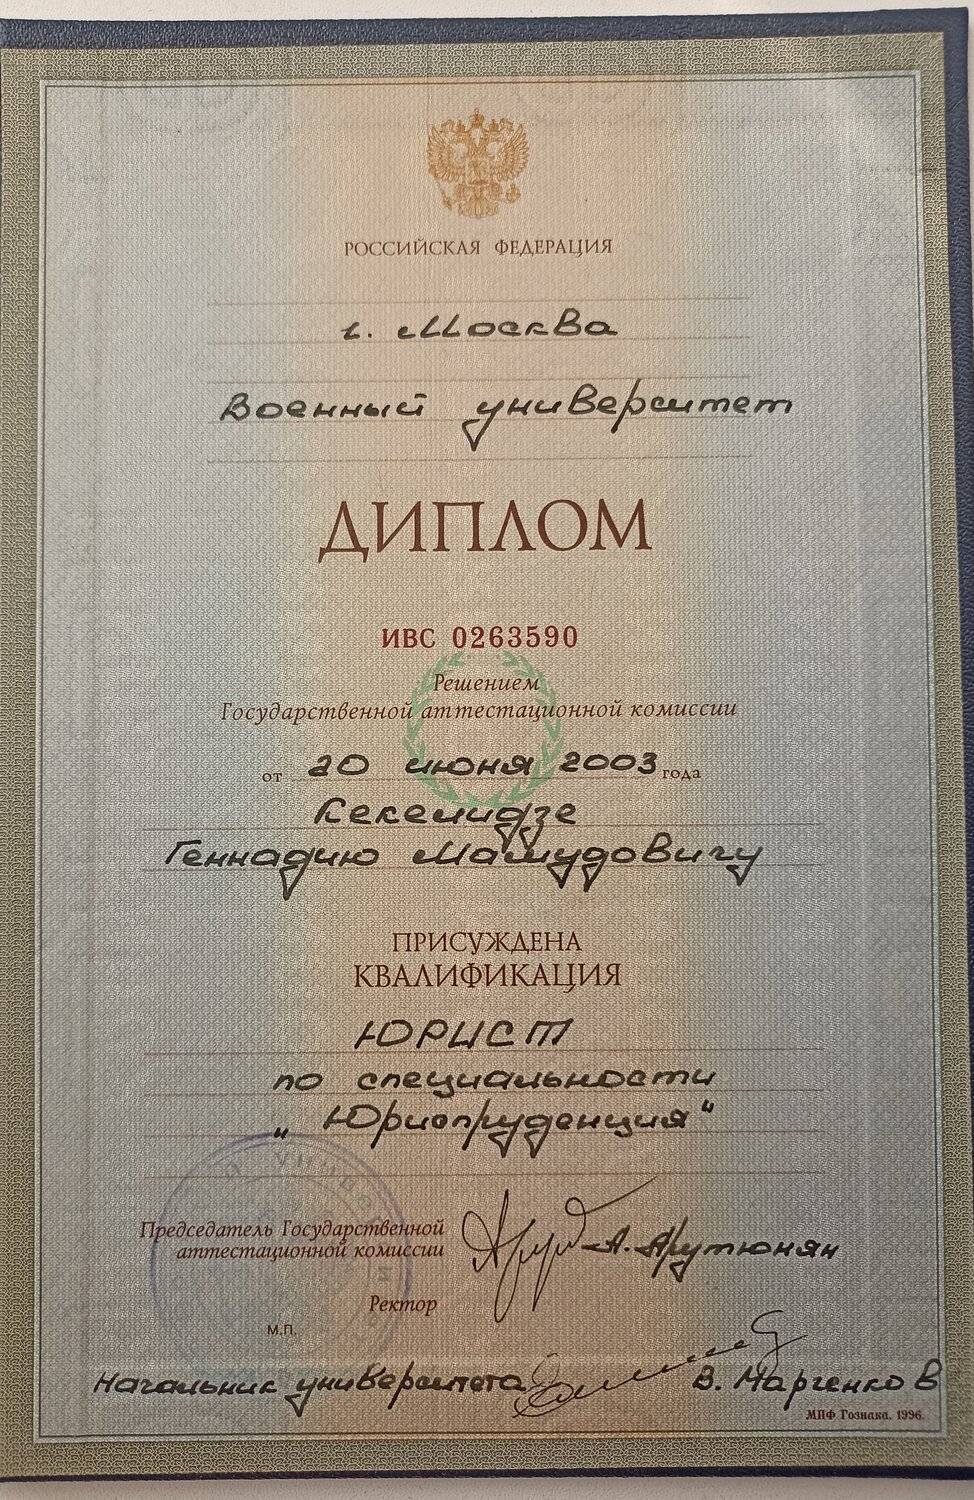 РОССИЙСКАЯ ФЕДЕРАЦИЯ
г. Москва
Военный университет
ДИПЛОМ
ИВС 0263590
Решением
Государственной аттестационной комиссии
от 20 июня 2003 года
Кекелидзе
Геннадию Мамудовичу
ПРИСУЖДЕНА
КВАЛИФИКАЦИЯ
ЮРИСТ
по специальности
„Юриспруденция“
Председатель Государственной
аттестационной комиссии А. Арутюнян
Ректор
М.П.
Начальник университета В. Марченков
МПФ Гознака. 1996.